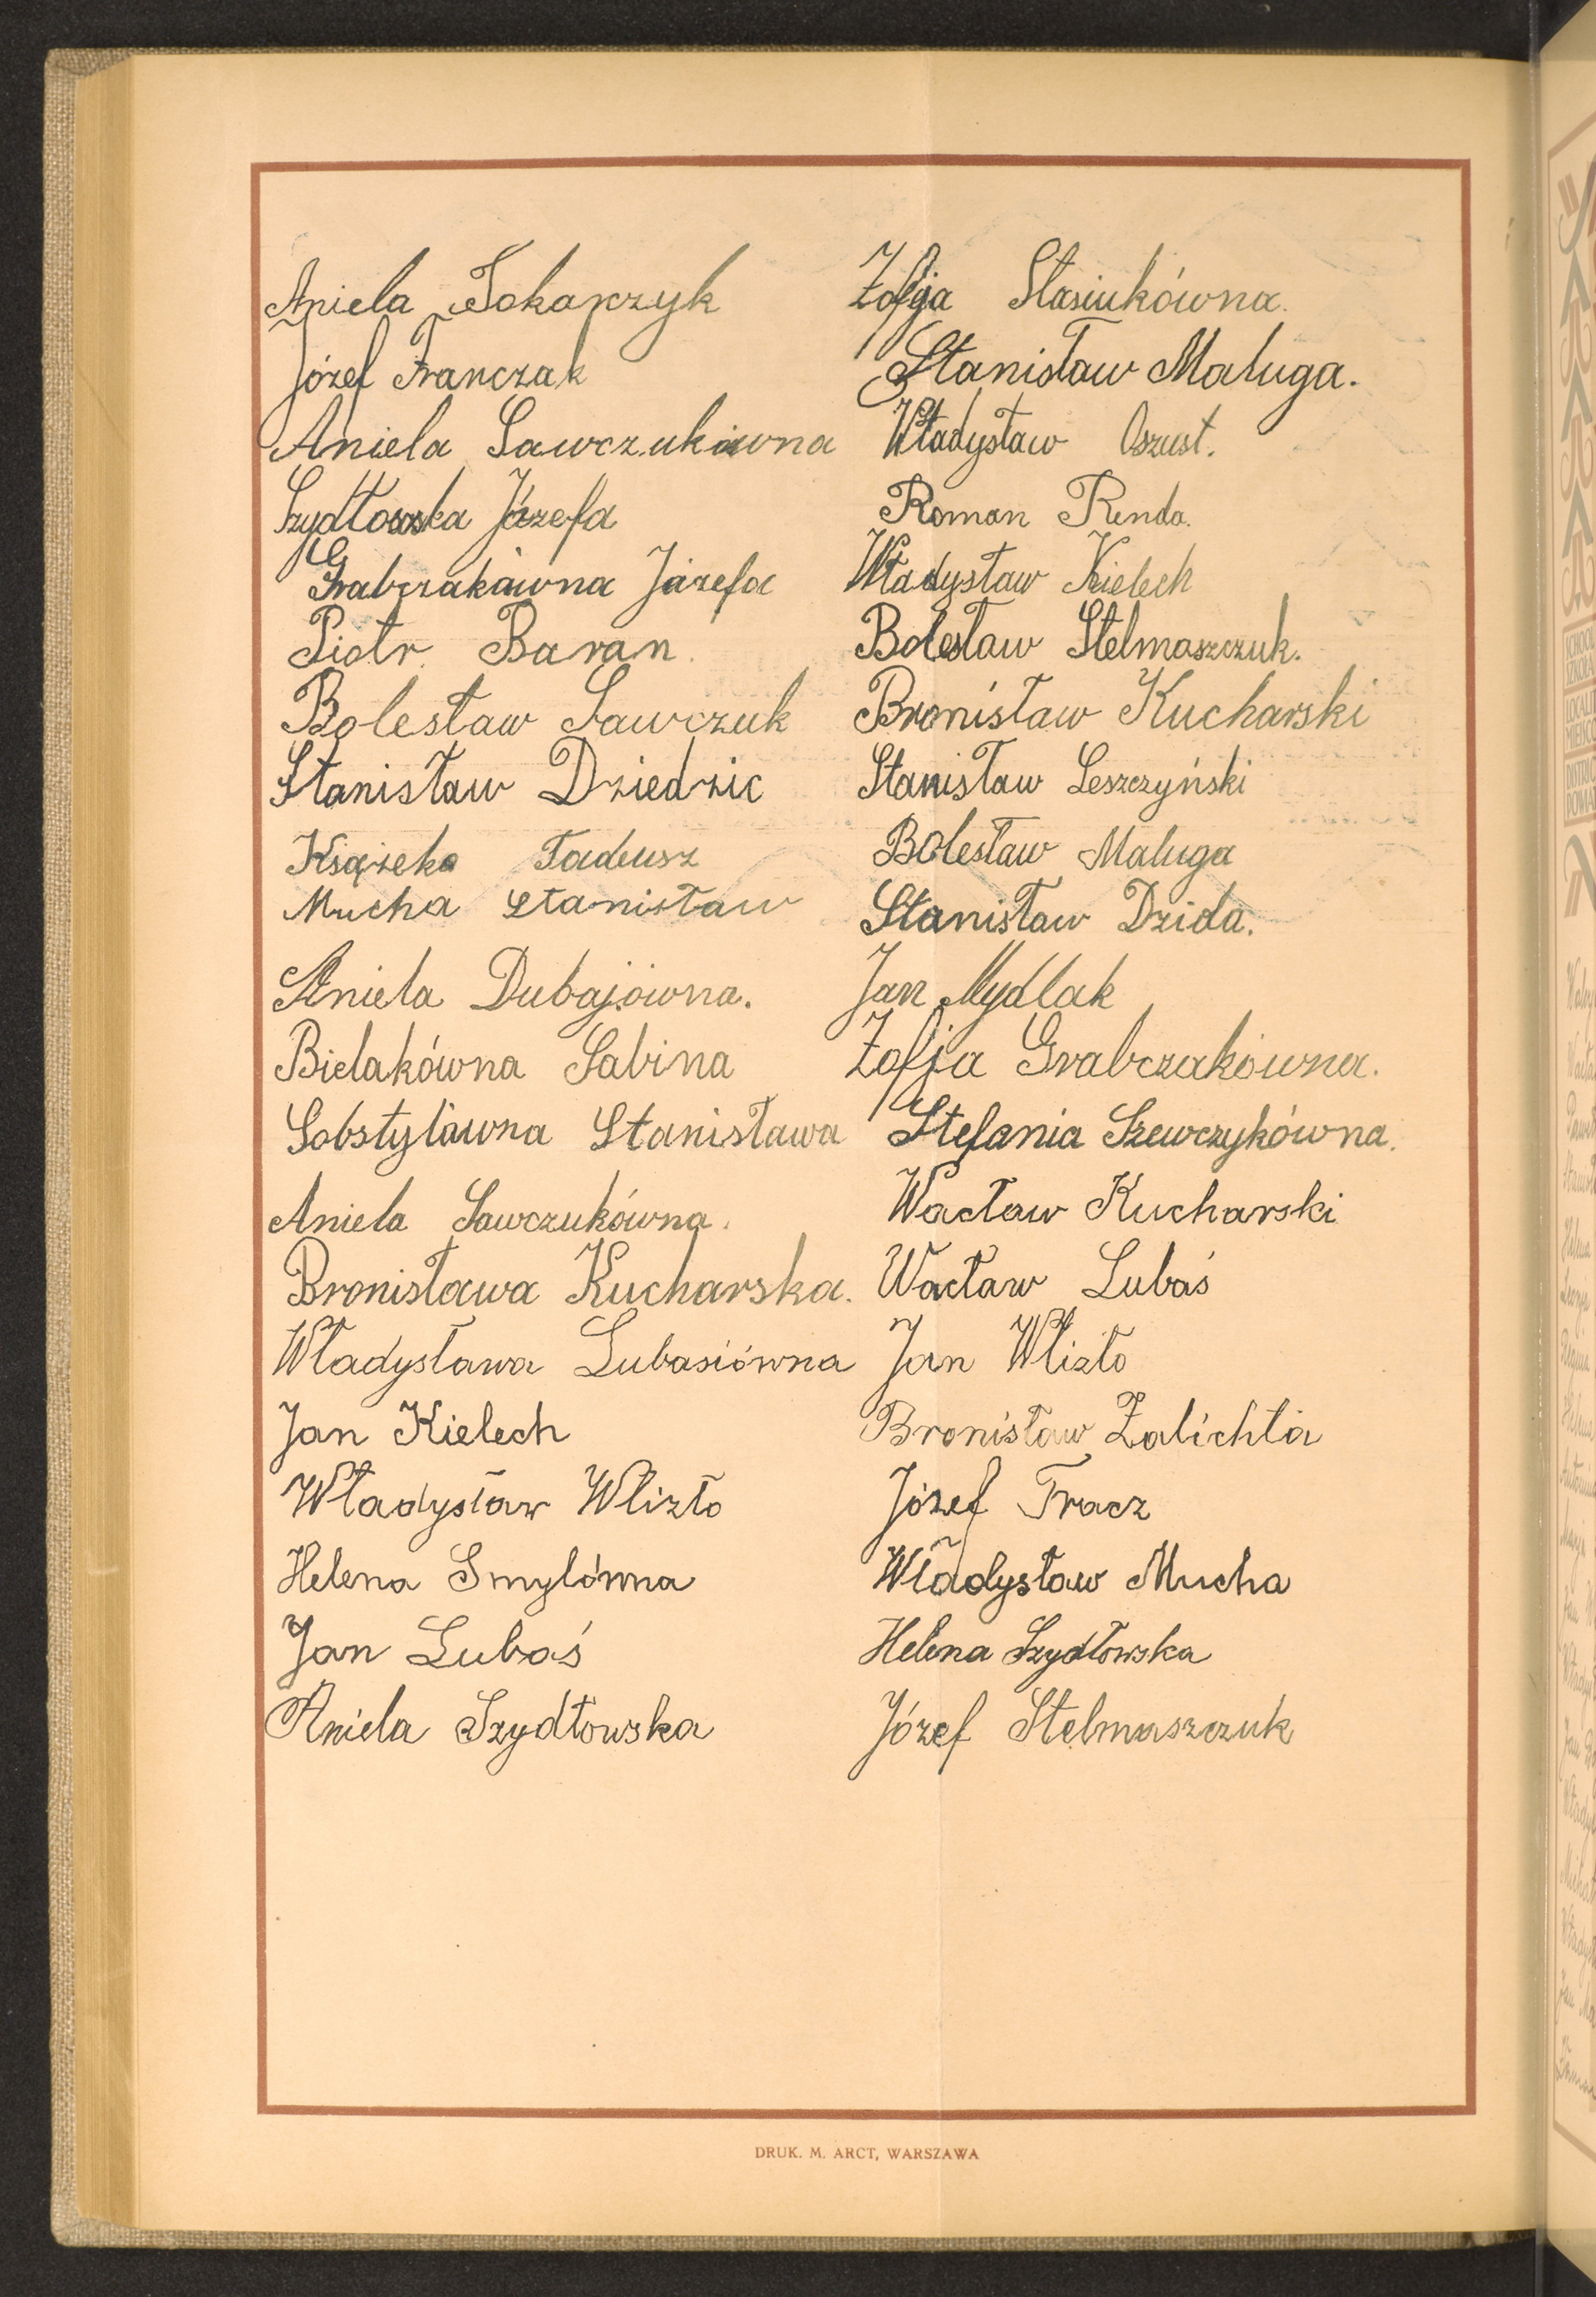 Aniela Tokarczyk
Józef Franczak
Aniela Sawczukówna
Szydłowska Józefa
Grabczakówna Józefa
Piotr Baran
Bolesław Sawczuk
Stanisław Dziedzic
Książek Tadeusz
Mucha Stanisław
Aniela Dubajówna.
Bielakówna Sabina
Sobstylówna Stanisława
Aniela Sawczukówna.
Bronisława Kucharska.
Władysława Lubasiówna
Jan Kielech
Władysław Wlizło
Helena Smylówna
Jan Lubaś
Aniela Szydłowska
Zofja Stasiukówna.
Stanisław Maluga.
Władysław Oszust.
Roman Renda.
Władysław Kielech
Bolesław Stelmaszczuk.
Bronisław Kucharski
Stanisław Leszczyński
Bolesław Maluga
Stanisław Dzida.
Jan Mydlak
Zofja Grabczakówna.
Stefania Szewczykówna.
Wacław Kucharski
Wacław Lubaś
Jan Wlizło
Bronisław Zalichta
Józef Tracz
Władysław Mucha
Helena Szydłowska
Józef Stelmaszczuk
DRUK. M. ARCT, WARSZAWA